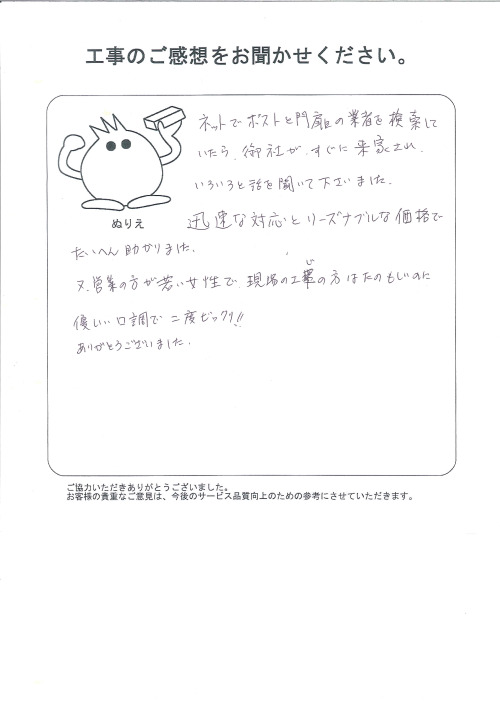 工事のご感想をお聞かせください。
ネットでポストと門扉の業者を検索して
いたら、御社が、すぐに来家され、
いろいろと話を聞いて下さいました。
ぬりえ
迅速な対応とリーズナブルな価格で
たいへん助かりました。
又、営業の方が若い女性で、現場の工事の方はたのもしいのに
優しい口調で二度ビックリ!!
ありがとうございました。
ご協力いただきありがとうございました。
お客様の貴重なご意見は、今後のサービス品質向上のための参考にさせていただきます。